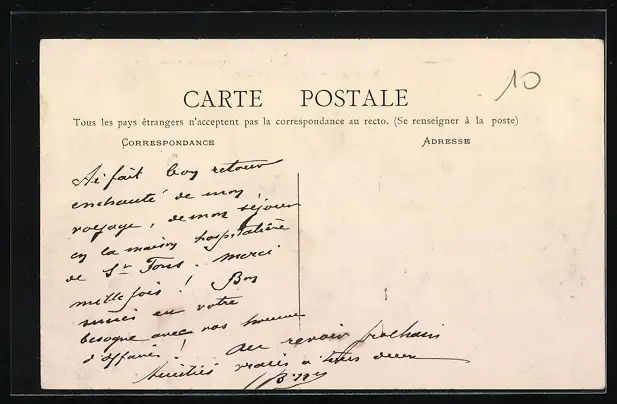 10
CARTE POSTALE
Tous les pays étrangers n'acceptent pas la correspondance au recto. (Se renseigner à la poste)
CORRESPONDANCE
ADRESSE
Ai fait bon retour
enchanté de mon
voyage, de mon séjour
en la maison hospitalière
de St. merci
mille fois ! Bon
en votre
besogne avec vos
d'affaires !
au revoir prochain
Amitiés vraies à